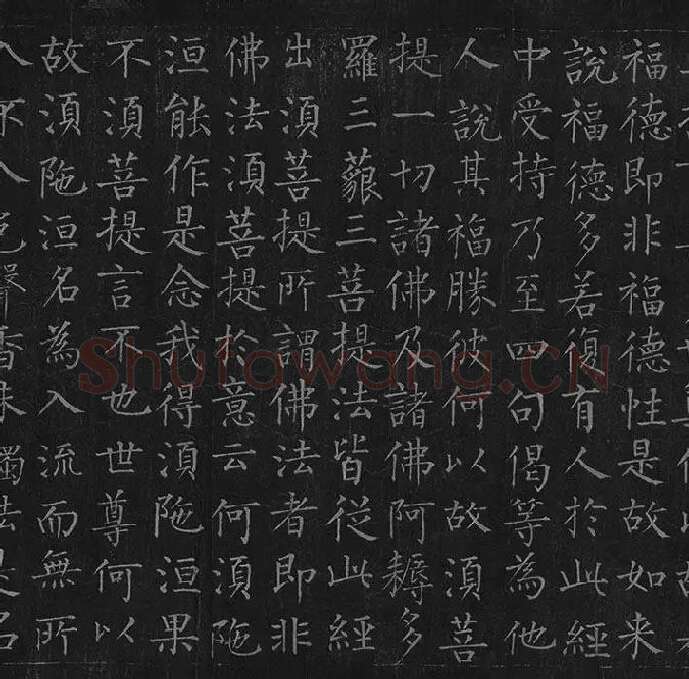 福德即非福德性是故如来
說福德多若復有人於此經
中受持乃至四句偈等為他
人說其福勝彼何以故須菩
提一切諸佛及諸佛阿耨多
羅三藐三菩提法皆從此經
出須菩提所謂佛法者即非
佛法須菩提於意云何須陁
洹能作是念我得須陁洹果
不須菩提言不也世尊何以
故須陁洹名為入流而無所
入不入色聲香味觸法是名
Shufawang.CN